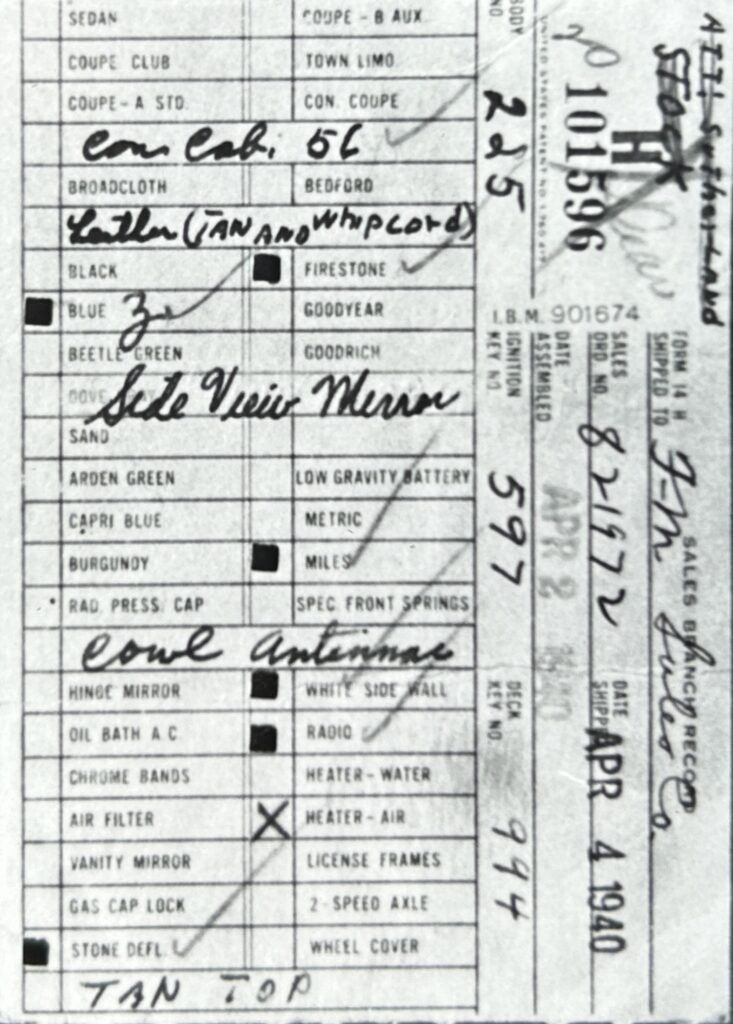 SEDAN COUPE - B AUX.
COUPE CLUB TOWN LIMO.
COUPE - A STD. CON. COUPE
Con Cab. 56
BROADCLOTH BEDFORD
Leather (TAN AND WHIPCORD)
BLACK FIRESTONE
BLUE 3 GOODYEAR
BEETLE GREEN GOODRICH
Side View Mirror
SAND
ARDEN GREEN LOW GRAVITY BATTERY
CAPRI BLUE METRIC
BURGUNDY MILES
RAD. PRESS. CAP SPEC. FRONT SPRINGS
Cowl Antennae
HINGE MIRROR WHITE SIDE WALL
OIL BATH A C RADIO
CHROME BANDS HEATER - WATER
AIR FILTER X HEATER - AIR
VANITY MIRROR LICENSE FRAMES
GAS CAP LOCK 2 - SPEED AXLE
STONE DEFL. WHEEL COVER
TAN TOP
ATT: Sutherland
STOCK
20
H
101596
UNITED STATES PATENT NO.
BODY NO 225
I.B.M. 901674
FORM 14 H SALES BRANCH RECORD
SHIPPED TO F-M Sales Co.
SALES ORD. NO. 82972 DATE SHIPP APR 4 1940
DATE ASSEMBLED APR 2 1940
IGNITION KEY NO. 597 DECK KEY NO. 994